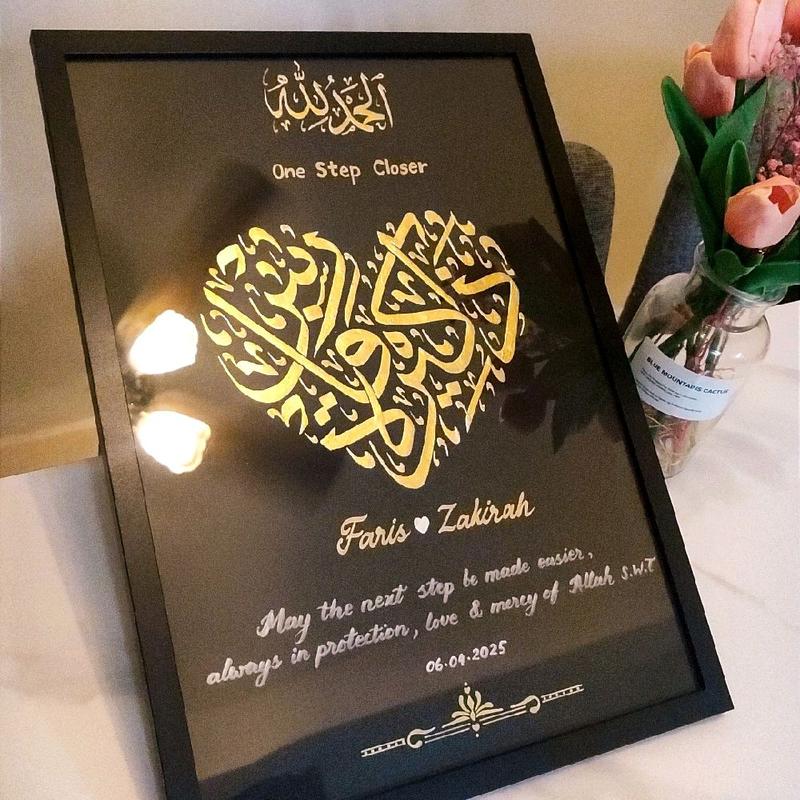 الحمد لله
One Step Closer
فارس و ذاكيرة
Faris Zakirah
May the next step be made easier,
always in protection, love & mercy of Allah S.W.T
06.09.2025
BLUE MOUNTAINS CACTUS